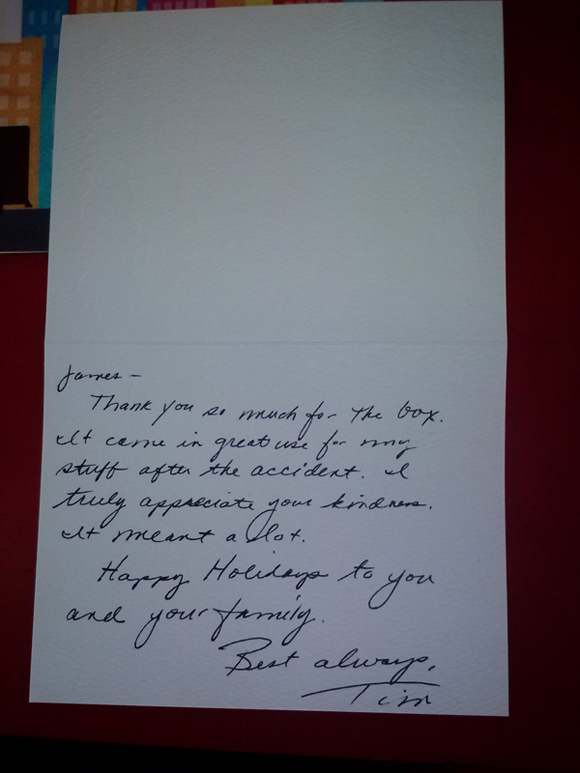 James -
Thank you so much for the box.
It came in great use for my
stuff after the accident. I
truly appreciate your kindness.
It meant a lot.
Happy Holidays to you
and your family.
Best always,
Tim